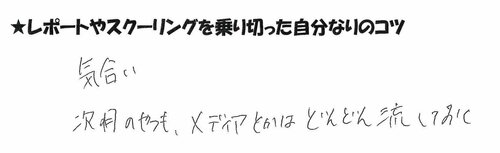 ★レポートやスクーリングを乗り切った自分なりのコツ
気合い
次期のやつも、メディアとかは どんどん流しておく